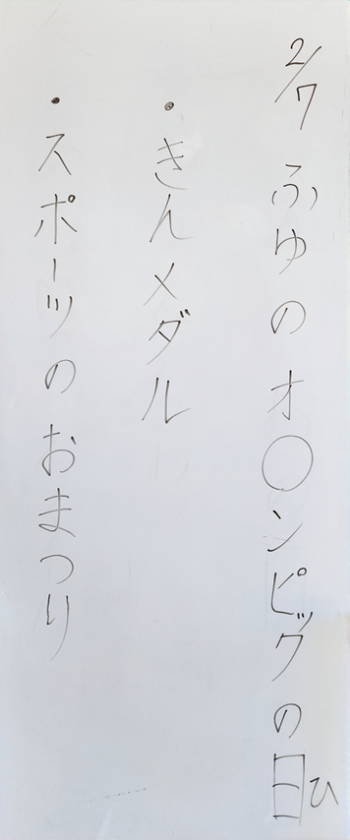 2/7 ふゆのオ〇ンピックの日ひ
・きんメダル
・スポーツのおまつり